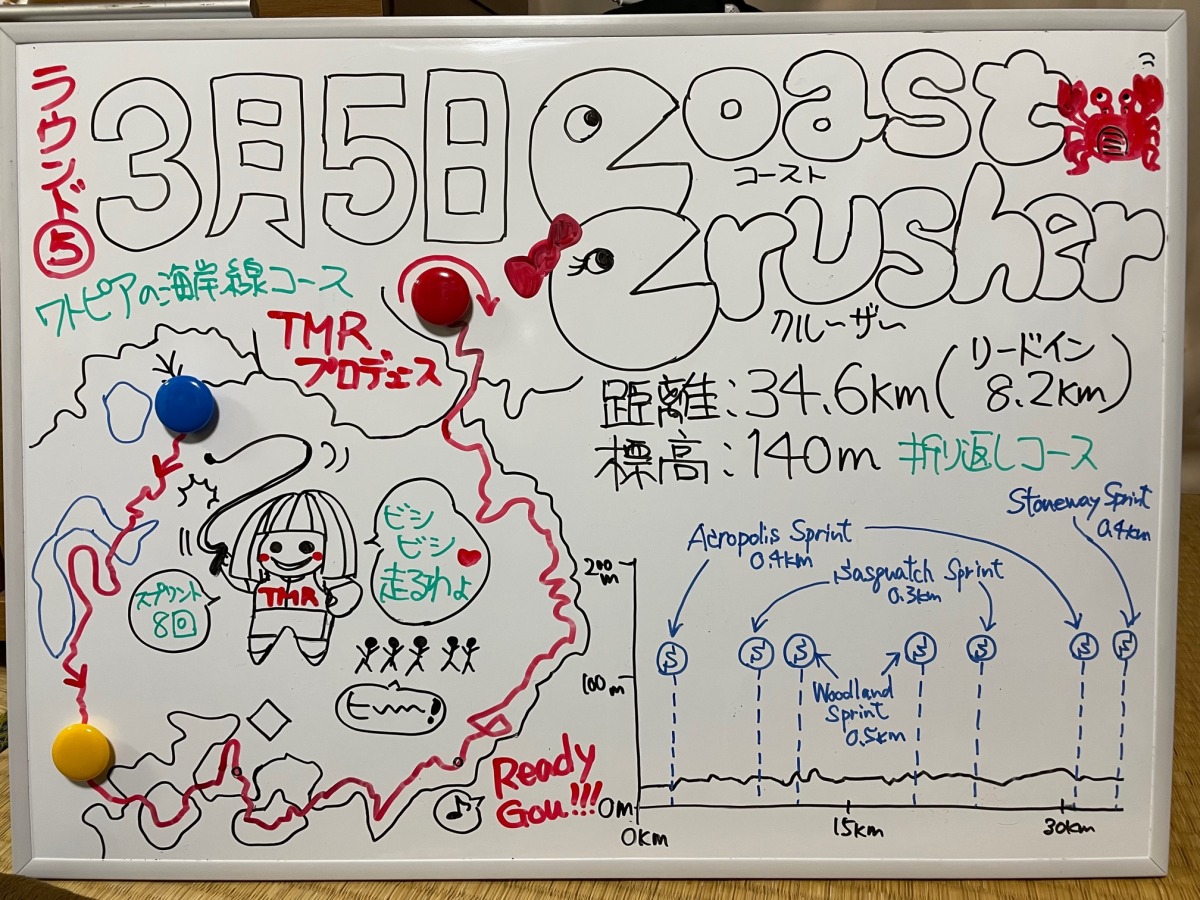 ラウンド⑤
3月5日
Coast
コースト
Crusher
クルーザー
ワトピアの海岸線コース
TMR
プロデュース
距離:34.6km(リードイン 8.2km)
標高:140m 折り返しコース
ビシ
ビシ
走るわよ
スプリント
8回
TMR
Ready
Gou!!!
Stoneway Sprint
0.4km
Acropolis Sprint
0.4km
Sasquatch Sprint
0.3km
S S S S S S S
Woodland
Sprint
0.5km
200m
100m
0m
0km 15km 30km